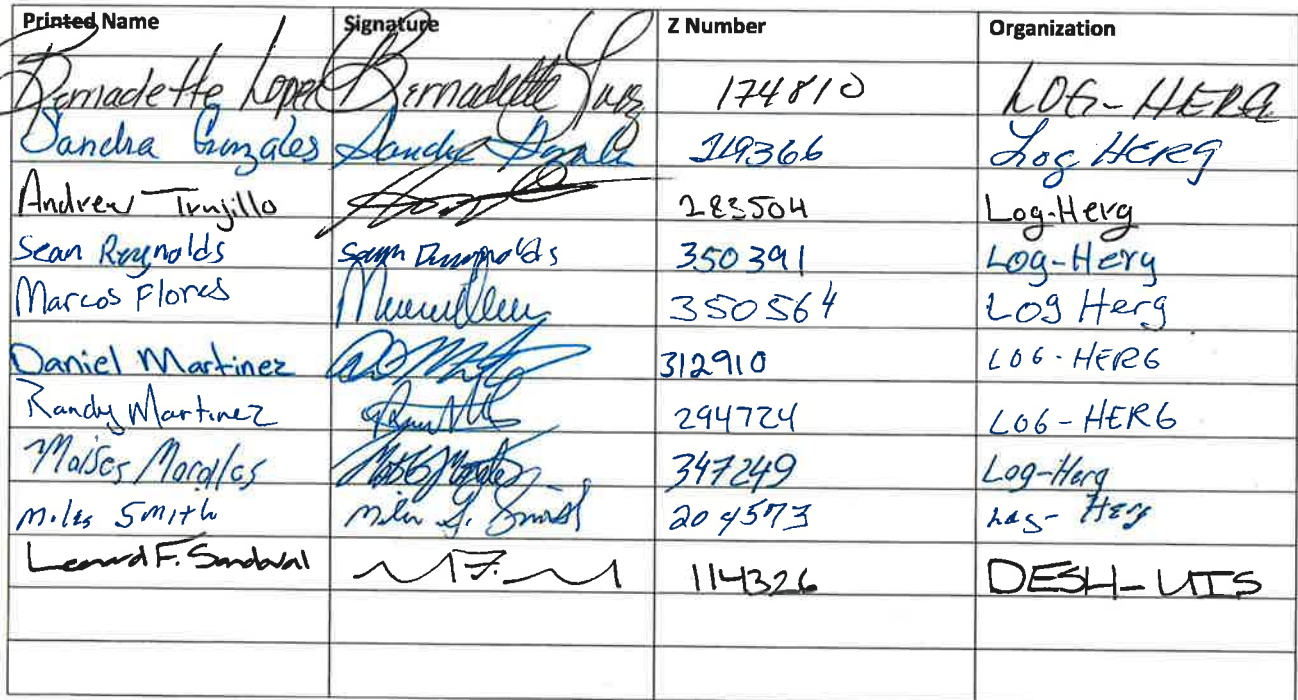 Printed Name Signature Z Number Organization
Bernadette Lopez Bernadette Lopez 174810 LOG-HERG
Sandra Gonzales Sandra 119366 Log HERG
Andrew Trujillo 283504 Log-Herg
Sean Reynolds Sean Reynolds 350391 Log-Herg
Marcos Flores 350564 Log Herg
Daniel Martinez 312910 LOG-HERG
Randy Martinez 294724 LOG-HERG
Moises Morales 347249 Log-Herg
Miles Smith Miles S. Smith 204573 Log-Herg
Leonard F. Sandoval 114326 DESH-UIS